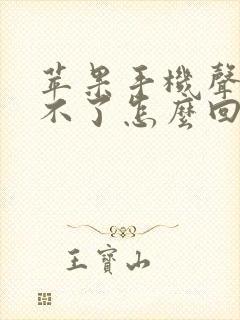 苹果手機聲
不了怎麼回
王寶山